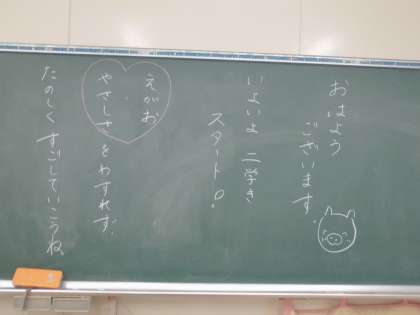 おはよう
ございます。
いよいよ 二学き
スタート!
えがお
やさしさ をわすれず、
たのしく すごしていこうね